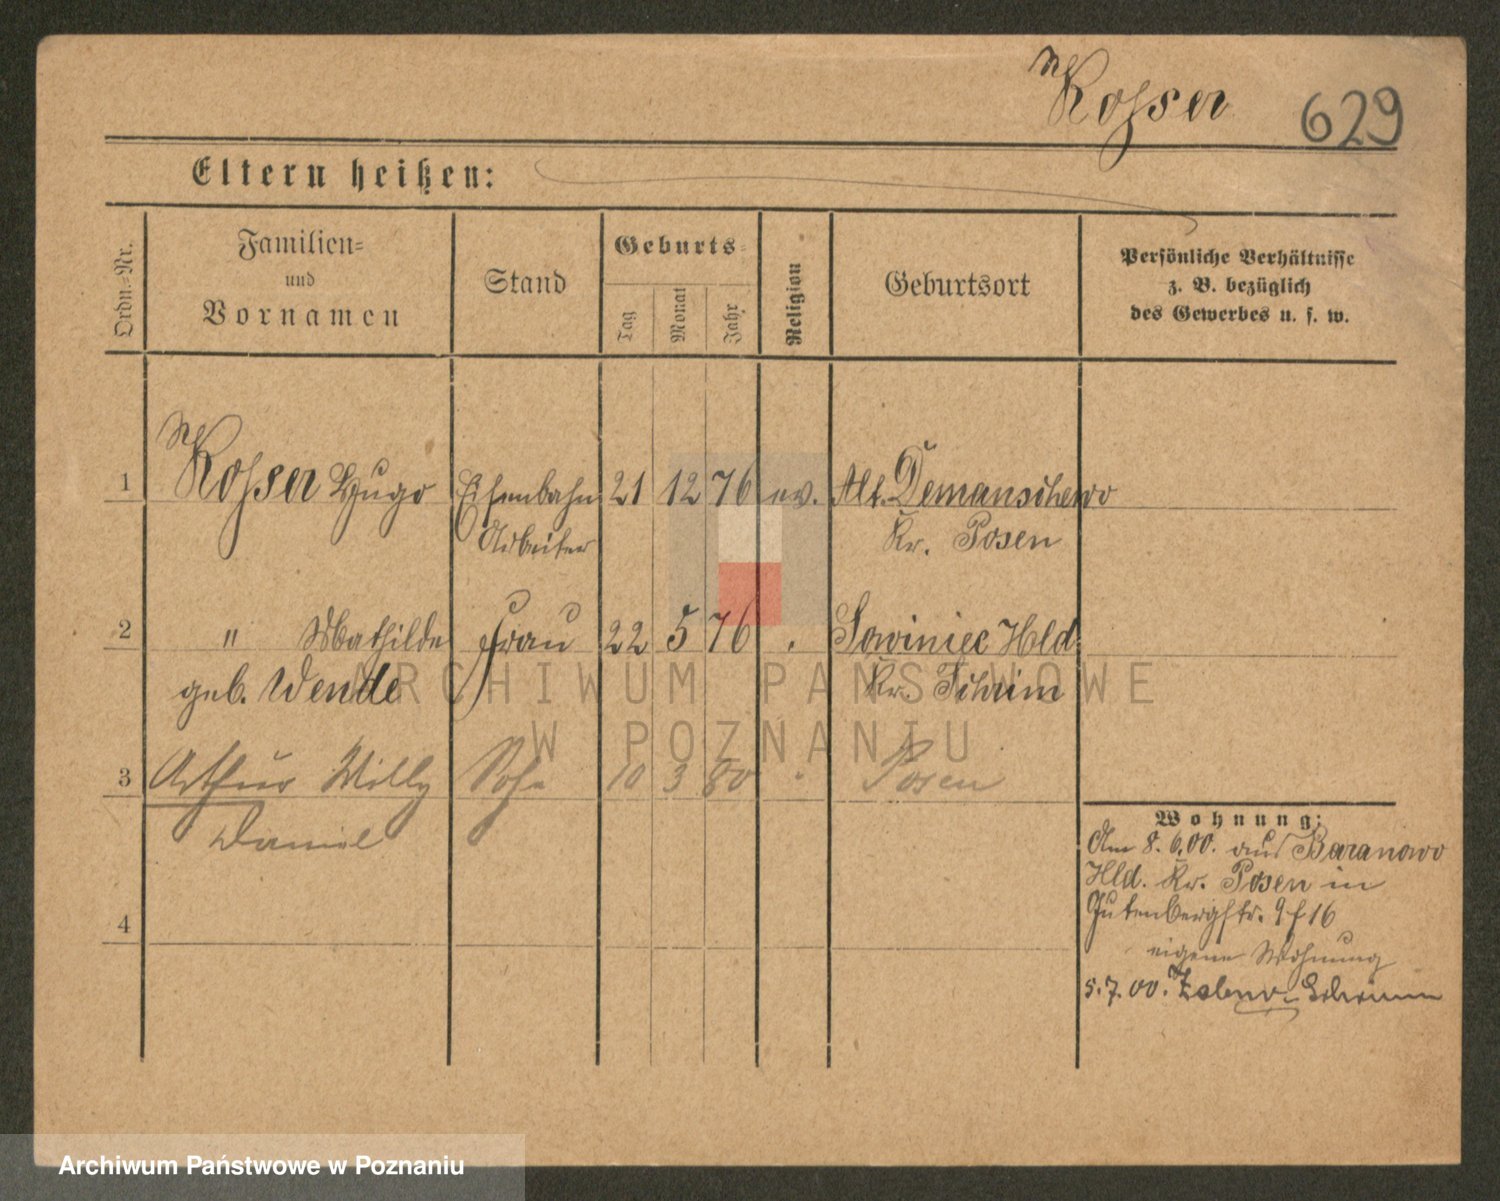 Kohser 629
Eltern heißen:
Ordn.-Nr.
Familien=
und
Vornamen
Stand
Geburts=
Tag
Monat
Jahr
Religion
Geburtsort
Persönliche Verhältnisse
z. B. bezüglich
des Gewerbes u. s. w.
1 Kohser Hugo Eisenbahn 21 12 76 ev. Alt. Demanschewo
Arbeiter Kr. Posen
2 " Mathilde Frau 22 5 76 " Sowiniec Hld
geb. Wende Kr. Schrim
3 Arthur Willy Sohn 10 3 " Posen
Daniel
4
Wohnung:
Am 8.6.00. aus Baranowo
Hld. Kr. Posen in
Gutenbergstr. 9 f 16
eigene Wohnung
5.7.00. Schrimm
ARCHIWUM PAŃSTWOWE
W POZNANIU
Archiwum Państwowe w Poznaniu